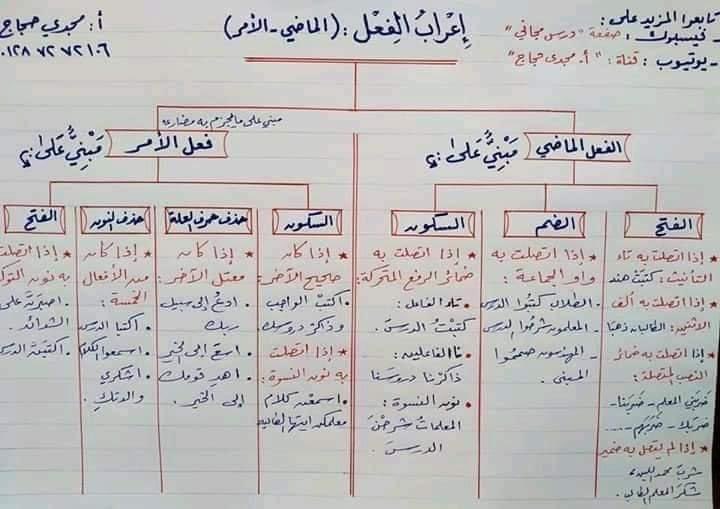 تابعوا المزيد على:
- فيسبوك: صفحة "درس مجاني"
- يوتيوب: قناة: "أ. مجدي حجاج"
إعراب الفعل: (الماضي - الأمر)
أ: مجدي حجاج
٠١٢٨٧٢٧٢١٠٦
الفعل الماضي مَبْنِيٌّ عَلَى:
الفتح
★ إذا اتصلت به تاء
التأنيث: كتبَتْ هند
★ إذا اتصلت به ألف
الاثنين: الطالبان ذهبَا
★ إذا اتصلت به ضمائر
النصب المتصلة:
ضَرَبَني المعلم - ضَرَبَنا -
ضربَك - ضَرَبَهم - ....
★ إذا لم يتصل به ضمير
شربَ محمد اللبن
شكرَ المعلم الطالب.
الضم
★ إذا اتصلت به
واو الجماعة:
- الطلاب كتبُوا الدرس
- المعلمون شرحُوا الدرس
- المهندسون صممُوا
المبنى.
السكون
★ إذا اتصلت به
ضمائر الرفع المتحركة:
• تاء الفاعل:
كتبْتُ الدرسَ.
• نا الفاعلين:
ذاكرْنا دروسَنا
• نون النسوة:
المعلماتُ شرحْنَ
الدرسَ.
مبني على ما يجزم به مضارعه
فعل الأمر مَبْنِيٌّ عَلَى:
السكون
★ إذا كان
صحيح الآخر:
• اكتبْ الواجب
وذاكرْ دروسك
★ إذا اتصلت
به نون النسوة:
• اسمعْن كلام
معلمكن أيتها الطالبات
حذف حرف العلة
★ إذا كان
معتل الآخر:
• ادعُ إلى سبيل
ربك
• اسعَ إلى الخير
• اهدِ قومك
إلى الخير.
حذف النون
★ إذا كان
من الأفعال
الخمسة:
• اكتبا الدرس
• اسمعوا الكلام
• اشكري
والدتكِ.
الفتح
★ إذا اتصلت
به نون التوكيد
• اصبرَنَّ على
الشدائد.
• اكتبَنَّ الدرس